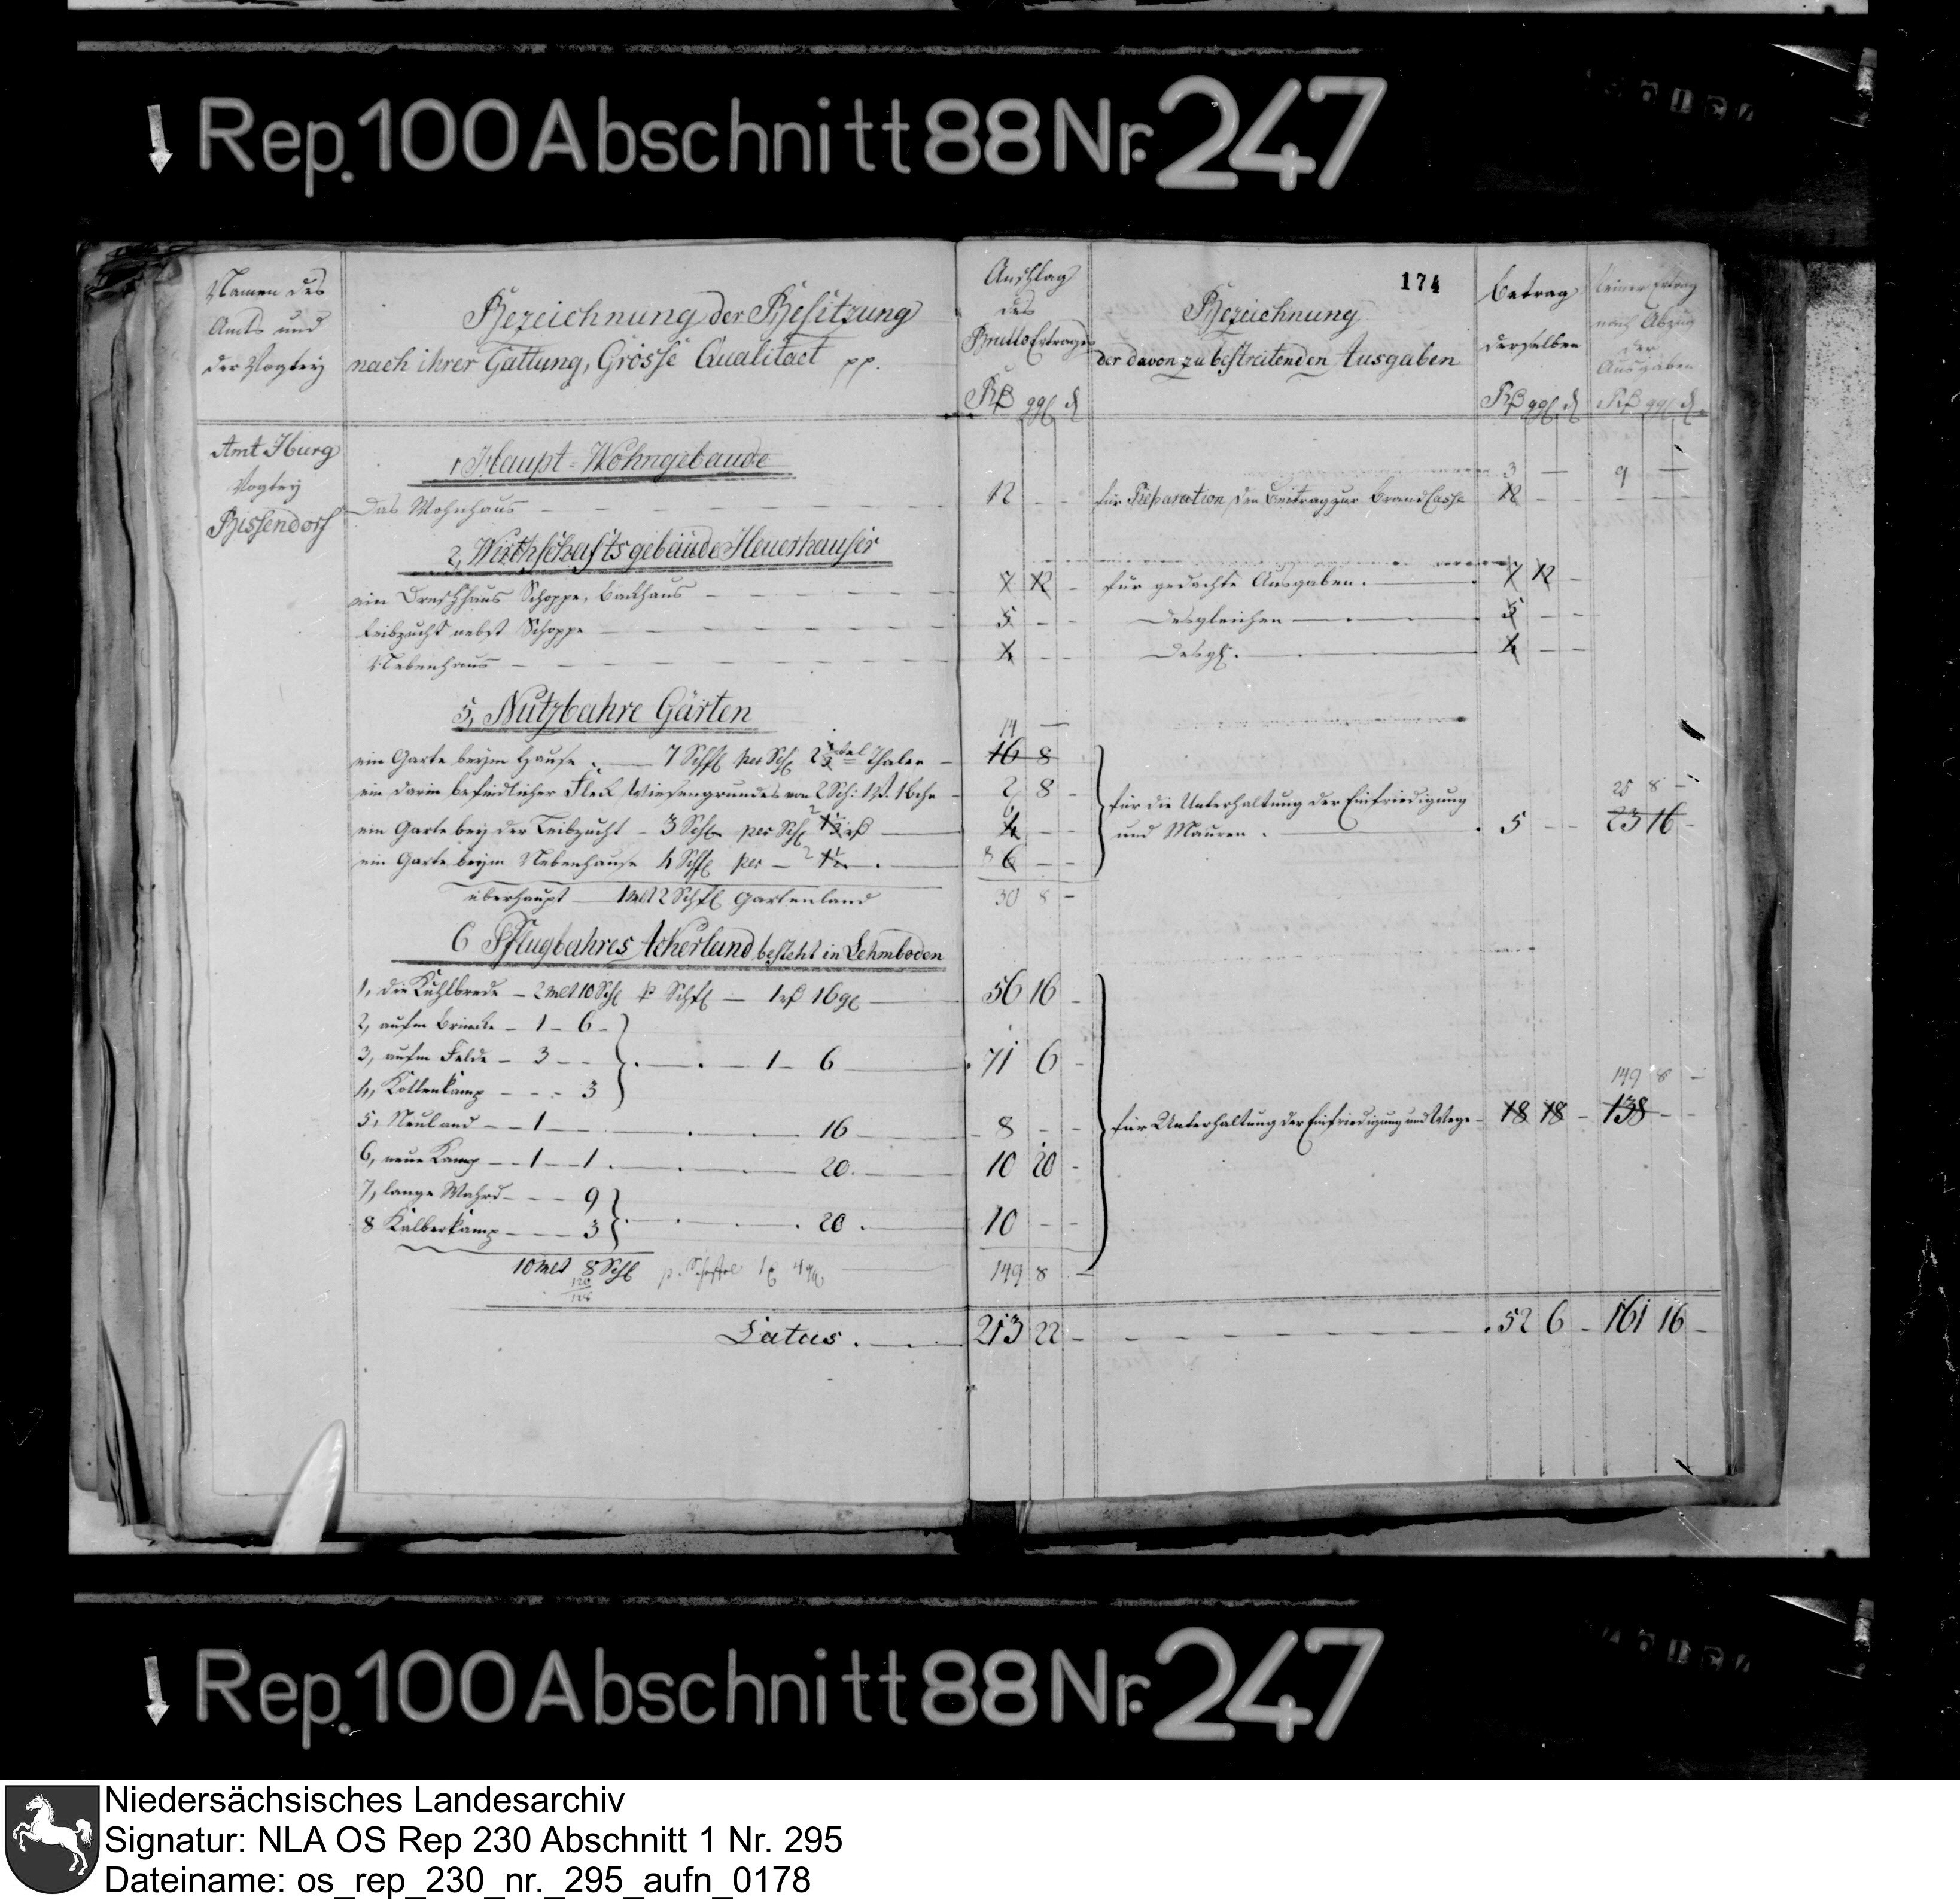 Rep. 100 Abschnitt 88 Nr. 247
174
Namen des
Amts und
der Vogtey
Bezeichnung der Besitzung
nach ihrer Gattung, Grösse Qualitaet pp.
Anschlag
des
Brutto Ertrages
Rß ggl d
Bezeichnung
der davon zu bestreitenden Ausgaben
Betrag
derselben
Rß ggl d
Reiner Ertrag
nach Abzug
der
Ausgaben
Rß ggl d
Amt Iburg
Vogtey
Bissendorf
1 Haupt-Wohngebäude
3 — 9 —
Das Wohnhaus — 12 - - für Reparation den Beitrag zur Brand Casse 12 -
2, Wirthschaftsgebäude Heuerhäuser
ein Dreschhaus Schoppe, Backhaus — 7 12 - für gedachte Ausgaben. — 7 12 -
Leibzucht nebst Schoppe — 5 - - Desgleichen — 5 - -
Nebenhaus — 4 - - Desgl. — 4 - -
5, Nutzbahre Gärten
14 —
ein Garte beym Hause — 7 Schfl per Schfl 2 Thaler — 16 8
ein darin befindlicher Fleck Wiesengrundes von 2 Sch: — 2 8 -
ein Garte bey der Leibzucht — 3 Schfl per Schfl — 4 - -
ein Garte beym Nebenhause 4 Schfl per — 2 1½ — 8 6 - -
überhaupt — 1 Mlt 2 Schfl Gartenland 30 8 -
für die Unterhaltung der Einfriedigung
und Mauren — 5 - -
25 8 -
23 16 -
6 Pflugbahres Ackerland besteht in Lehmboden
1, die Kuhlbrede — 2 Mlt 10 Schfl p Schfl — 1 rß 16 gl — 56 16 -
2, aufm Brincke — 1 — 6 -
3, aufm Felde — 3 — - 1 — 6 — 71 6 -
4, Kottenkamp - - - 3
5, Neuland — 1 — 16 — 8 - -
6, neue Kamp — 1 — 1 — 20 — 10 20 -
7, lange Wahrd — 9
8 Kälberkamp — 3 — 20 — 10 - -
10 Mlt 8 Schfl p. Scheffel 1 4 — 149 8 —
für Unterhaltung der Einfriedigung und Wege — 18 18 -
149 8 -
138 - -
Latus. — 213 22 - 52 6 - 161 16 -
Rep. 100 Abschnitt 88 Nr. 247
Niedersächsisches Landesarchiv
Signatur: NLA OS Rep 230 Abschnitt 1 Nr. 295
Dateiname: os_rep_230_nr._295_aufn_0178